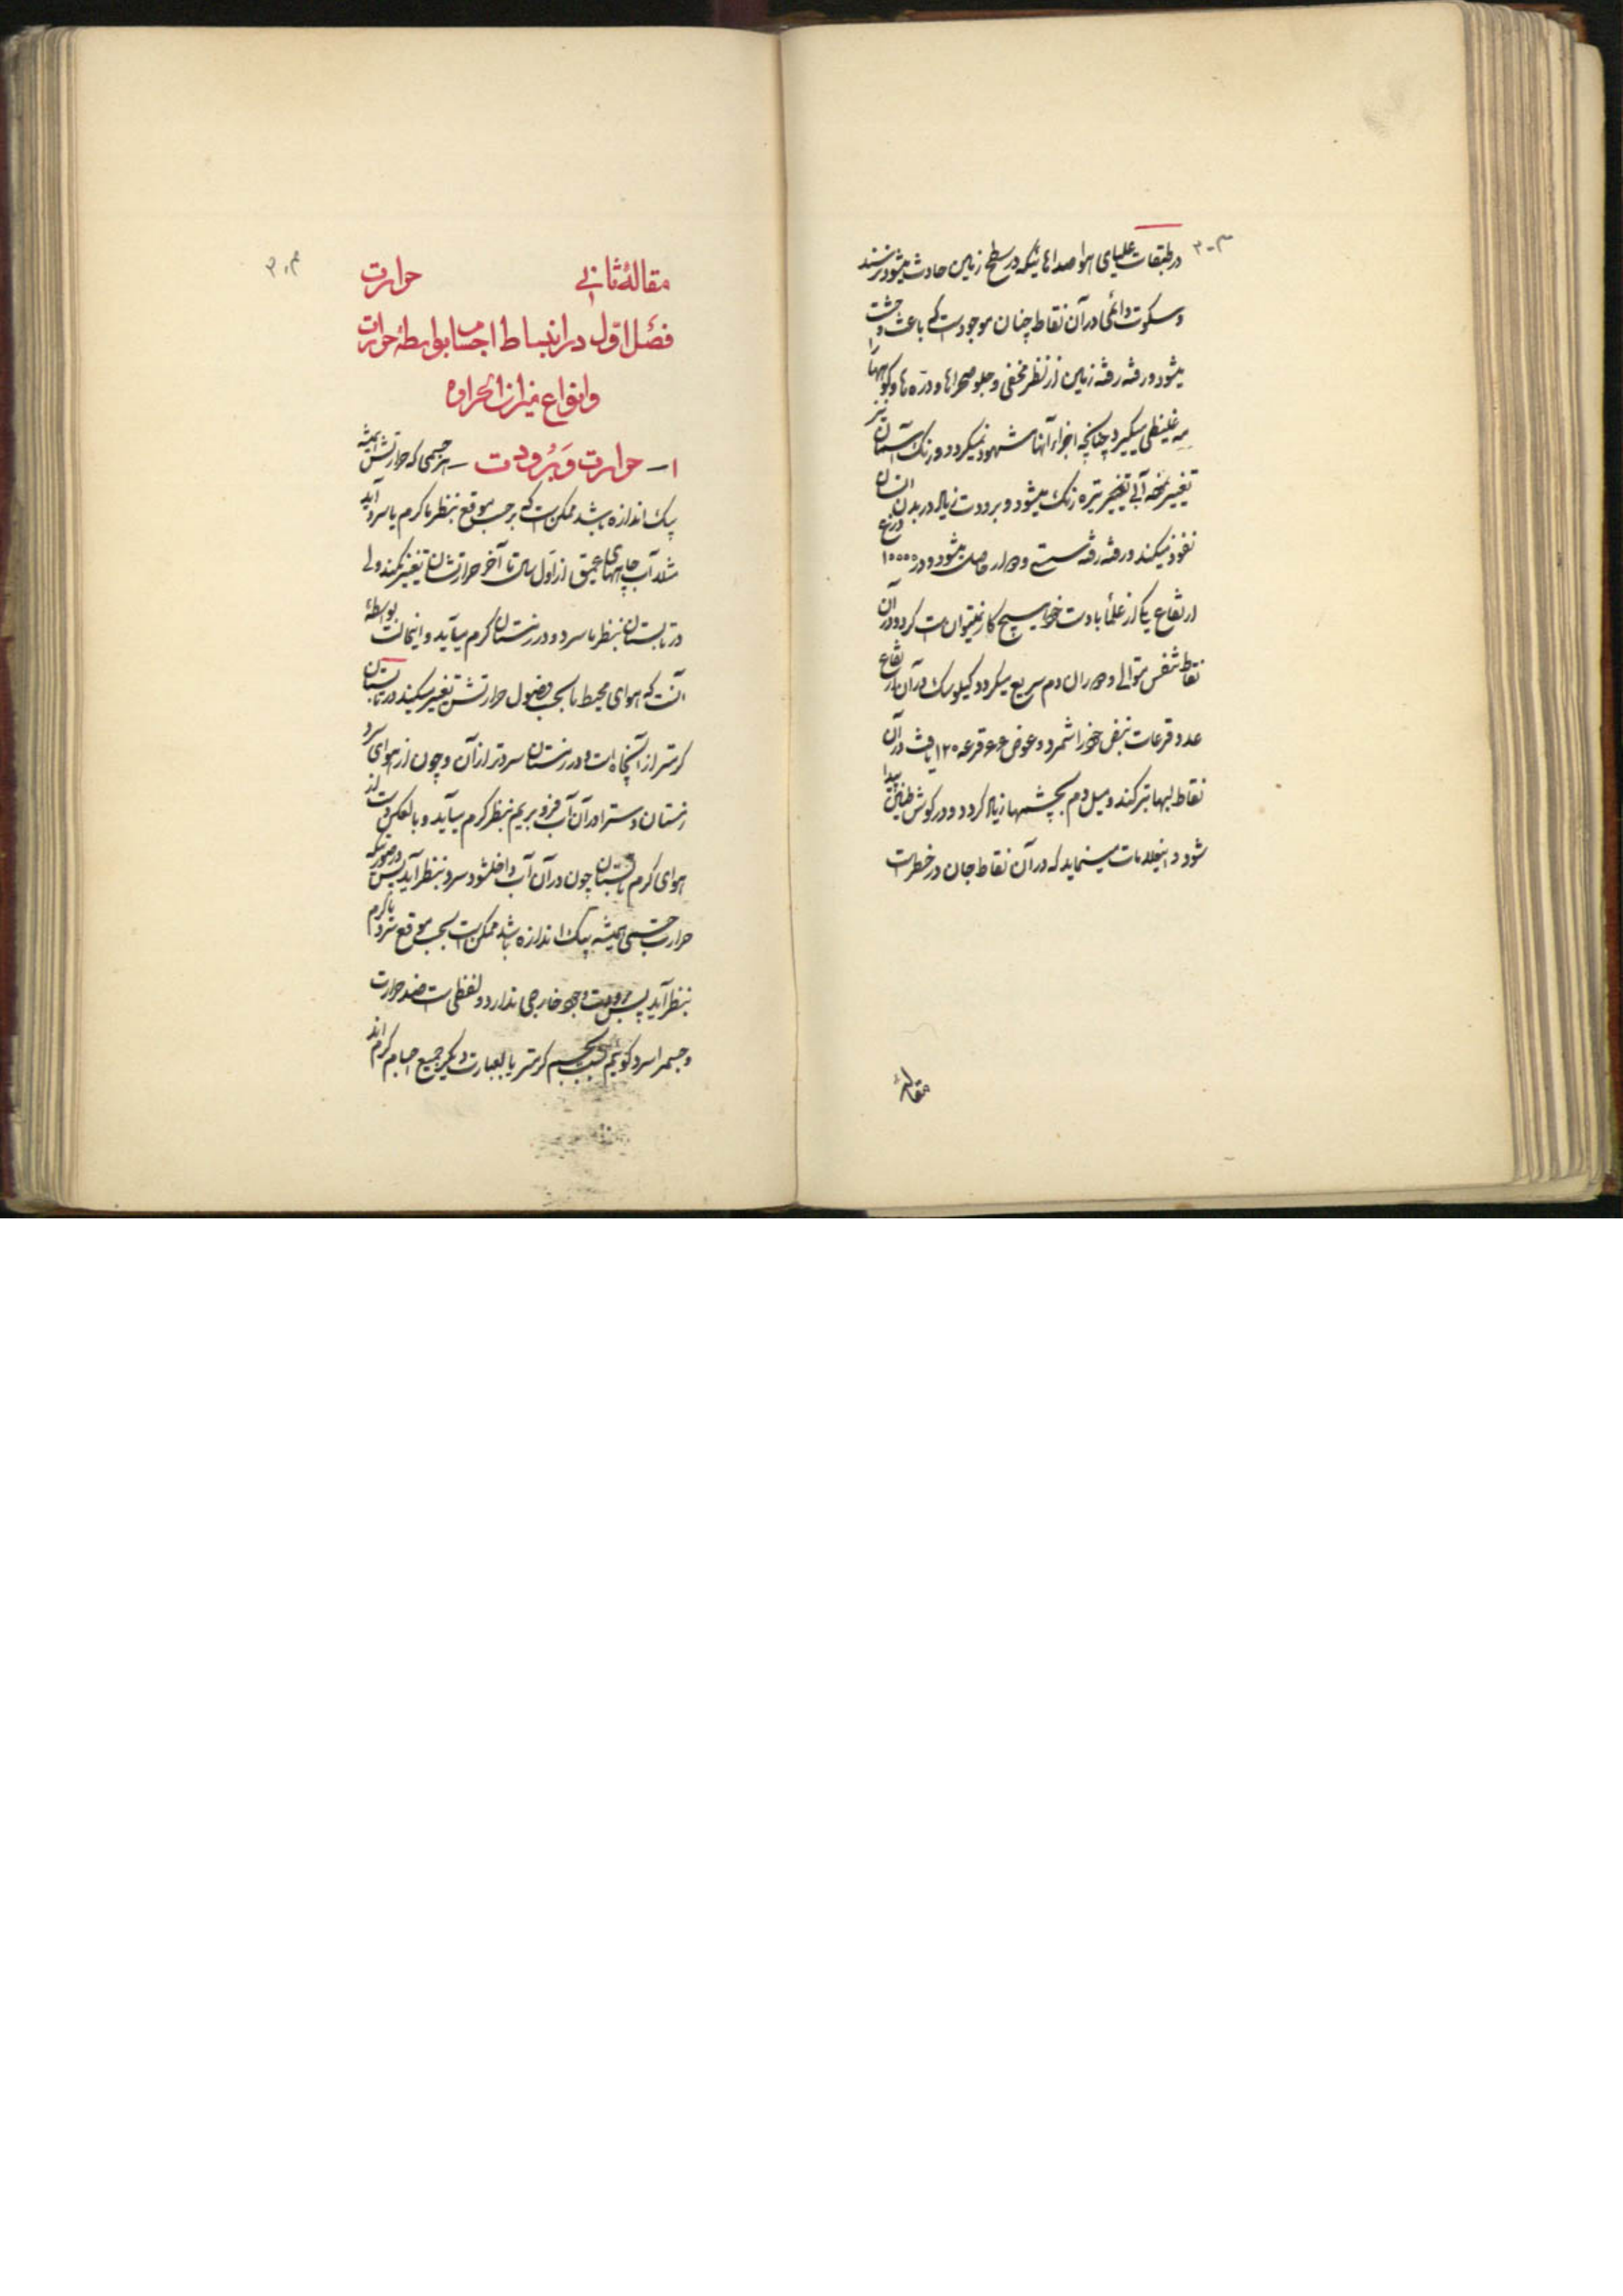 ۳۰۳
در طبقات علیای هوا صداهائیکه در سطح زمین حادث میشود نرسند
و سکوت دائمی در آن نقاط چنان موجودست که باعث وحشت
میشود و رفته رفته زمین از نظر مخفی و جلو صحراها و درّه ها و کوهها را
مه غلیظی میگیرد چنانچه اجزاء آنها مشهود نمیگردد و رنگ آسمان نیز
تغییر نموده آبی تیره رنگ میشود و برودت زیاد در بدن انسان
نفوذ میکند و رفته رفته سستی و حاصل میشود و در ۱۰۰۰۰ درع
ارتفاع یکی از علما با دست خود هیچ کار نمیتوانست کرد و در آن
نقاط تنفس متوالی و دوران دم سریع میگردد گیلوساک در آن ارتفاع
عدد قرعات نبض خود را شمرد و عوض ۶۶ قرعه ۱۲۰ یافت در آن
نقاط لبها ترکند و میل دم بچشمها زیاد گردد و در گوش طنین پیدا
شود و اینعلامات مینماید که در آن نقاط جان در خطرست
مقالهٔ
۳۰۴
مقالهٔ ثانی حرارت
فصل اول در انبساط اجسام بواسطهٔ حرارت
و انواع میزان الحراره
۱ـ حرارت و برودت ـ هر جسمی که حرارتش همیشه
بیک اندازه باشد ممکن است که بر حسب موقع بنظر ما گرم یا سرد آید
مثلا آب چاههای عمیق از اول سال تا آخر حرارتشان تغییر نمیکند ولی
در تابستان بنظر ما سرد و در زمستان گرم میآید و اینحالت بواسطهٔ
آنست که هوای محیط ما بحسب فصول حرارتش تغییر میکند در تابستان
گرمتر از آنچاه است و در زمستان سردتر از آن و چون از هوای سرد
زمستان دست را در آن آب فرو بریم بنظر گرم میآید و بالعکس دست از
هوای گرم تابستان چون در آن آب داخلشود سرد بنظر آید پس در صورتیکه
حرارت جسمی همیشه بیک اندازه باشد ممکن است بحسب موقع سرد یا گرم
بنظر آید پس برودت وجود خارجی ندارد و لفظی است ضد حرارت
و جسمی را سرد گوئیم نسبت بجسم گرمتر یا بعبارت دیگر جمیع اجسام گرم اند